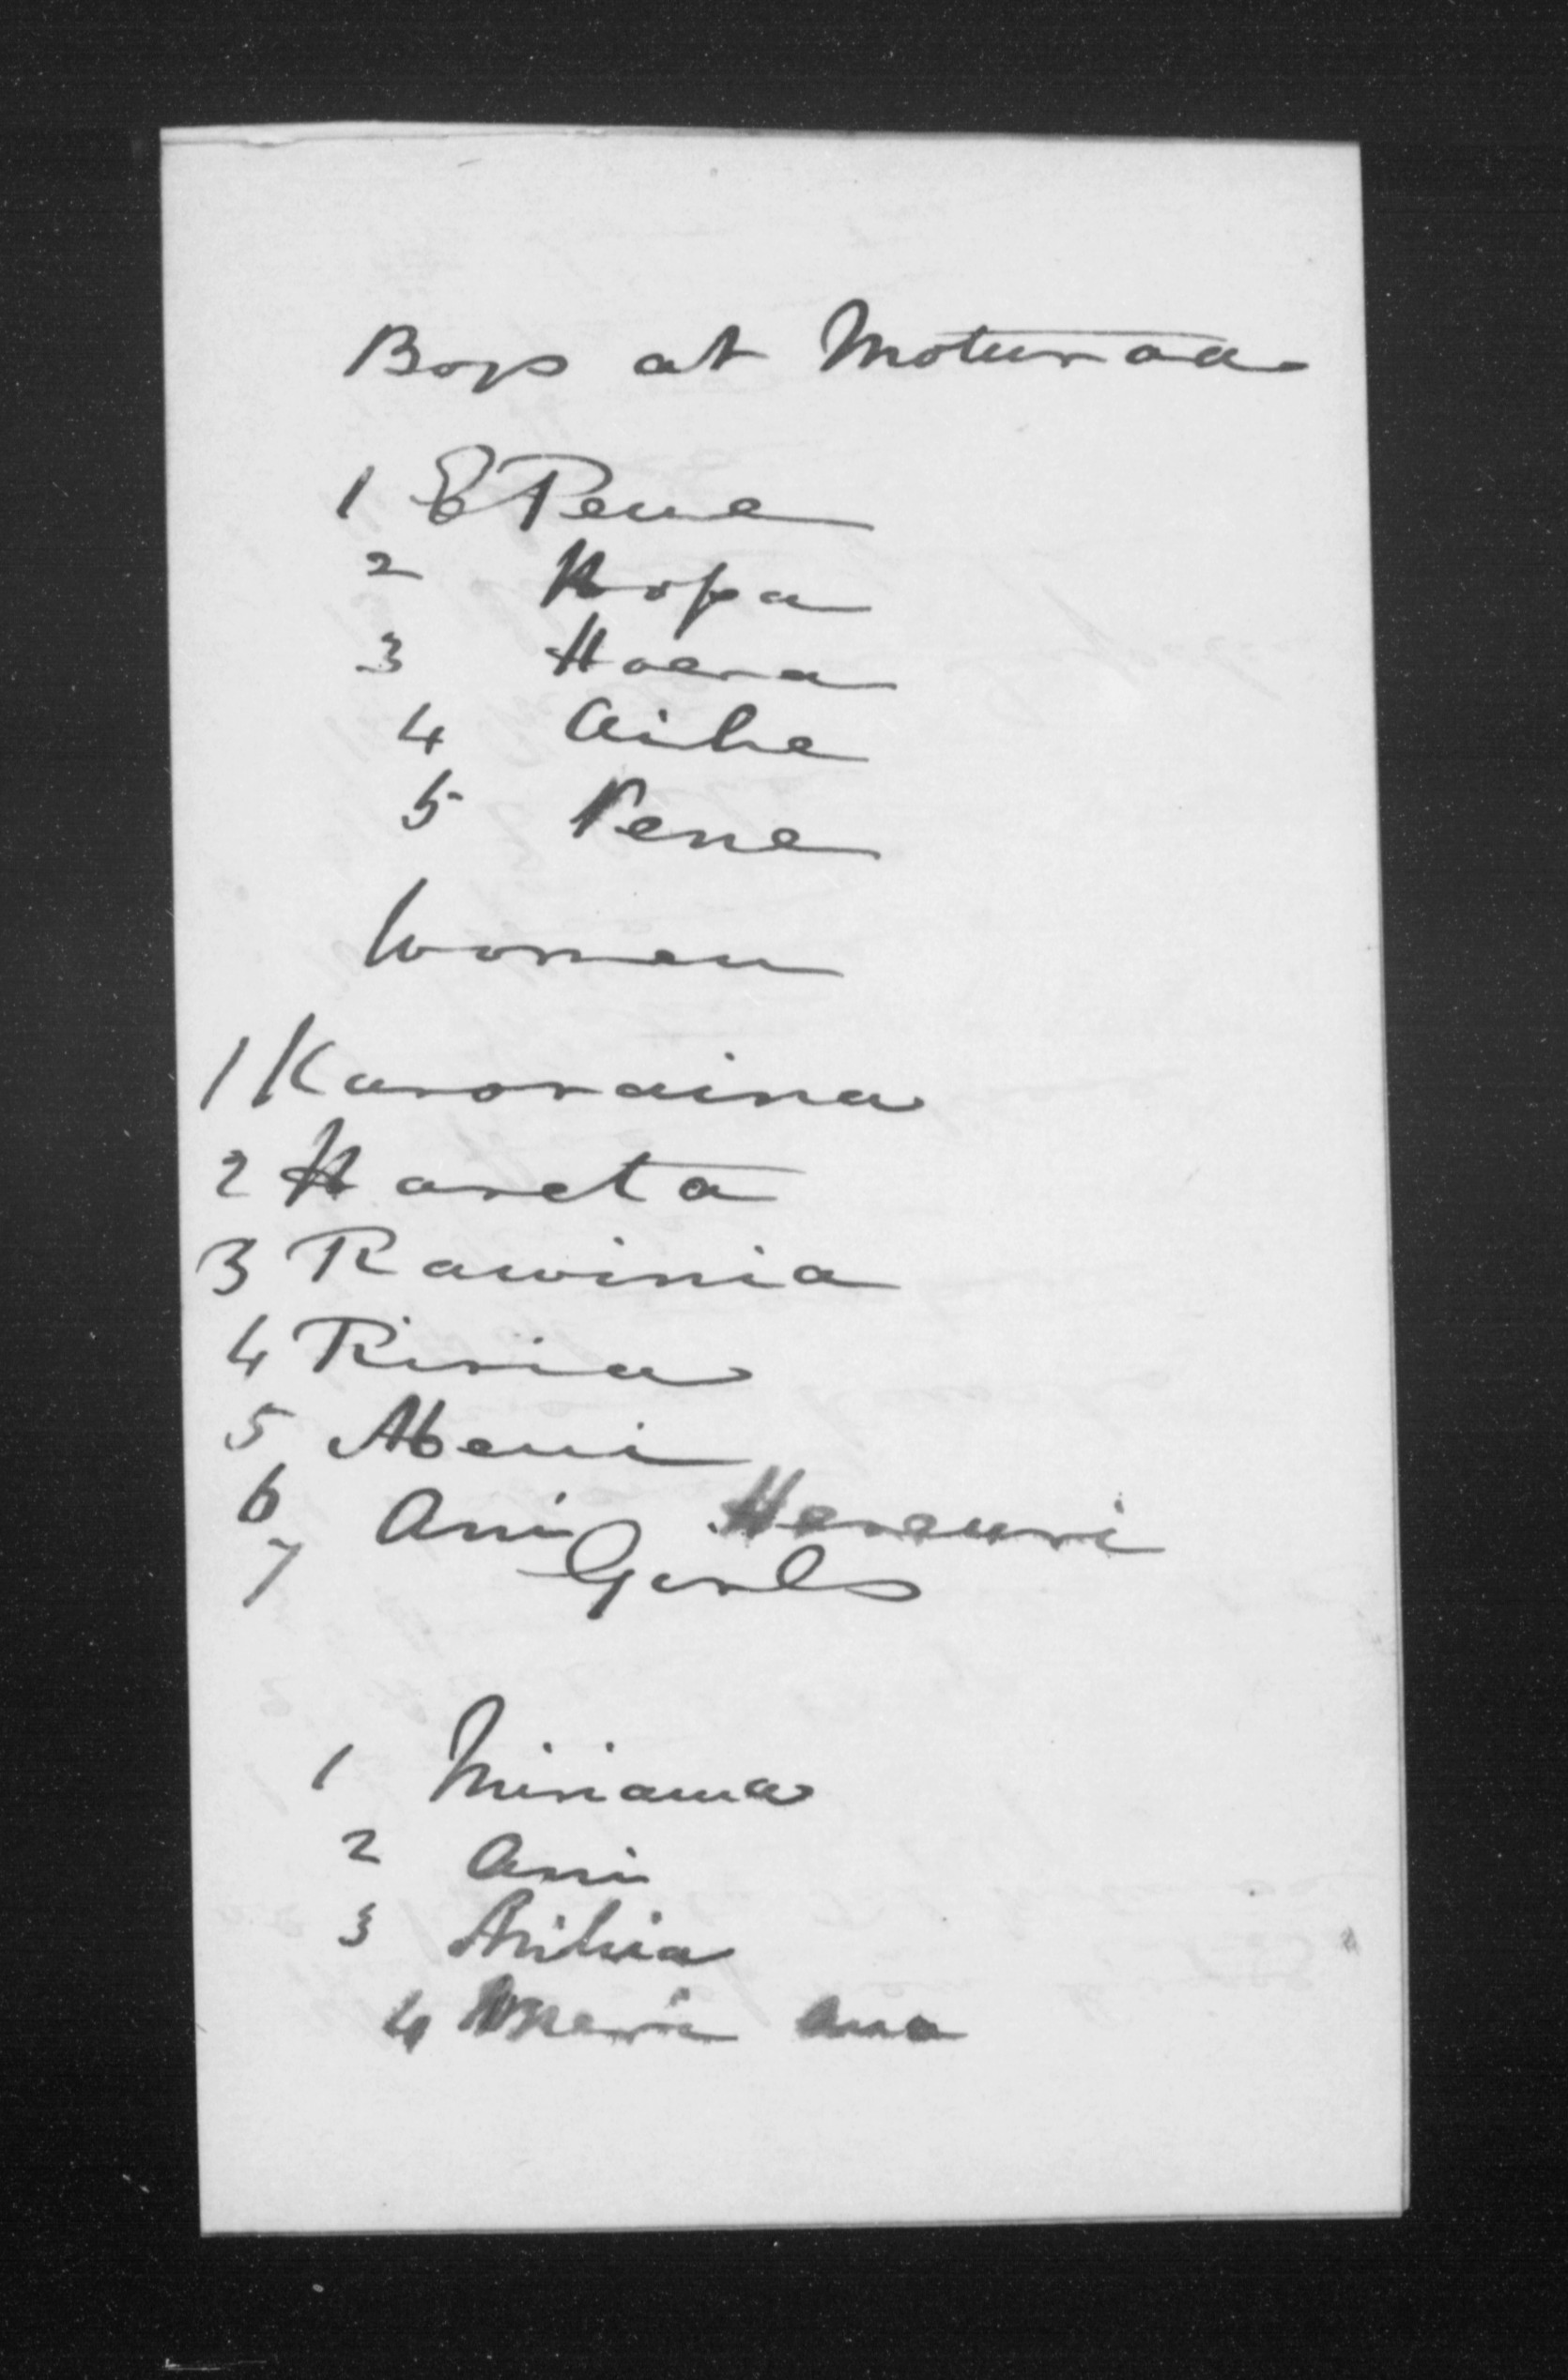 Boys at Moturoa
1 E Pene
2 Hopa
3 Hoera
4 Aihe
5 Pene
Women
1 Kororaina
2 Hareta
3 Rawinia
4 Riria
5
6 Ani
7 Girls
1 Miriama
2 Ani
3
4 Meri Ana